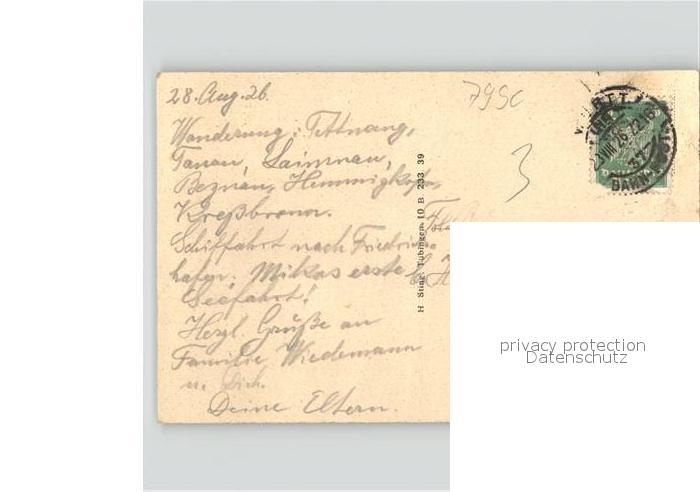 28. Aug. 26.
7990
Wanderung: Tettnang,
Tanau, Laimnau,
3
Beznau, Hemmigkofen,
Kreßbronn.
Schiffahrt nach Friedrichs-
hafen. Mikas erste
Seefahrt!
Herzl. Grüße an
Familie Wiedemann
u. Dich.
Deine Eltern.
H Sting, Tübingen. 10 B 233 39
privacy protection
Datenschutz